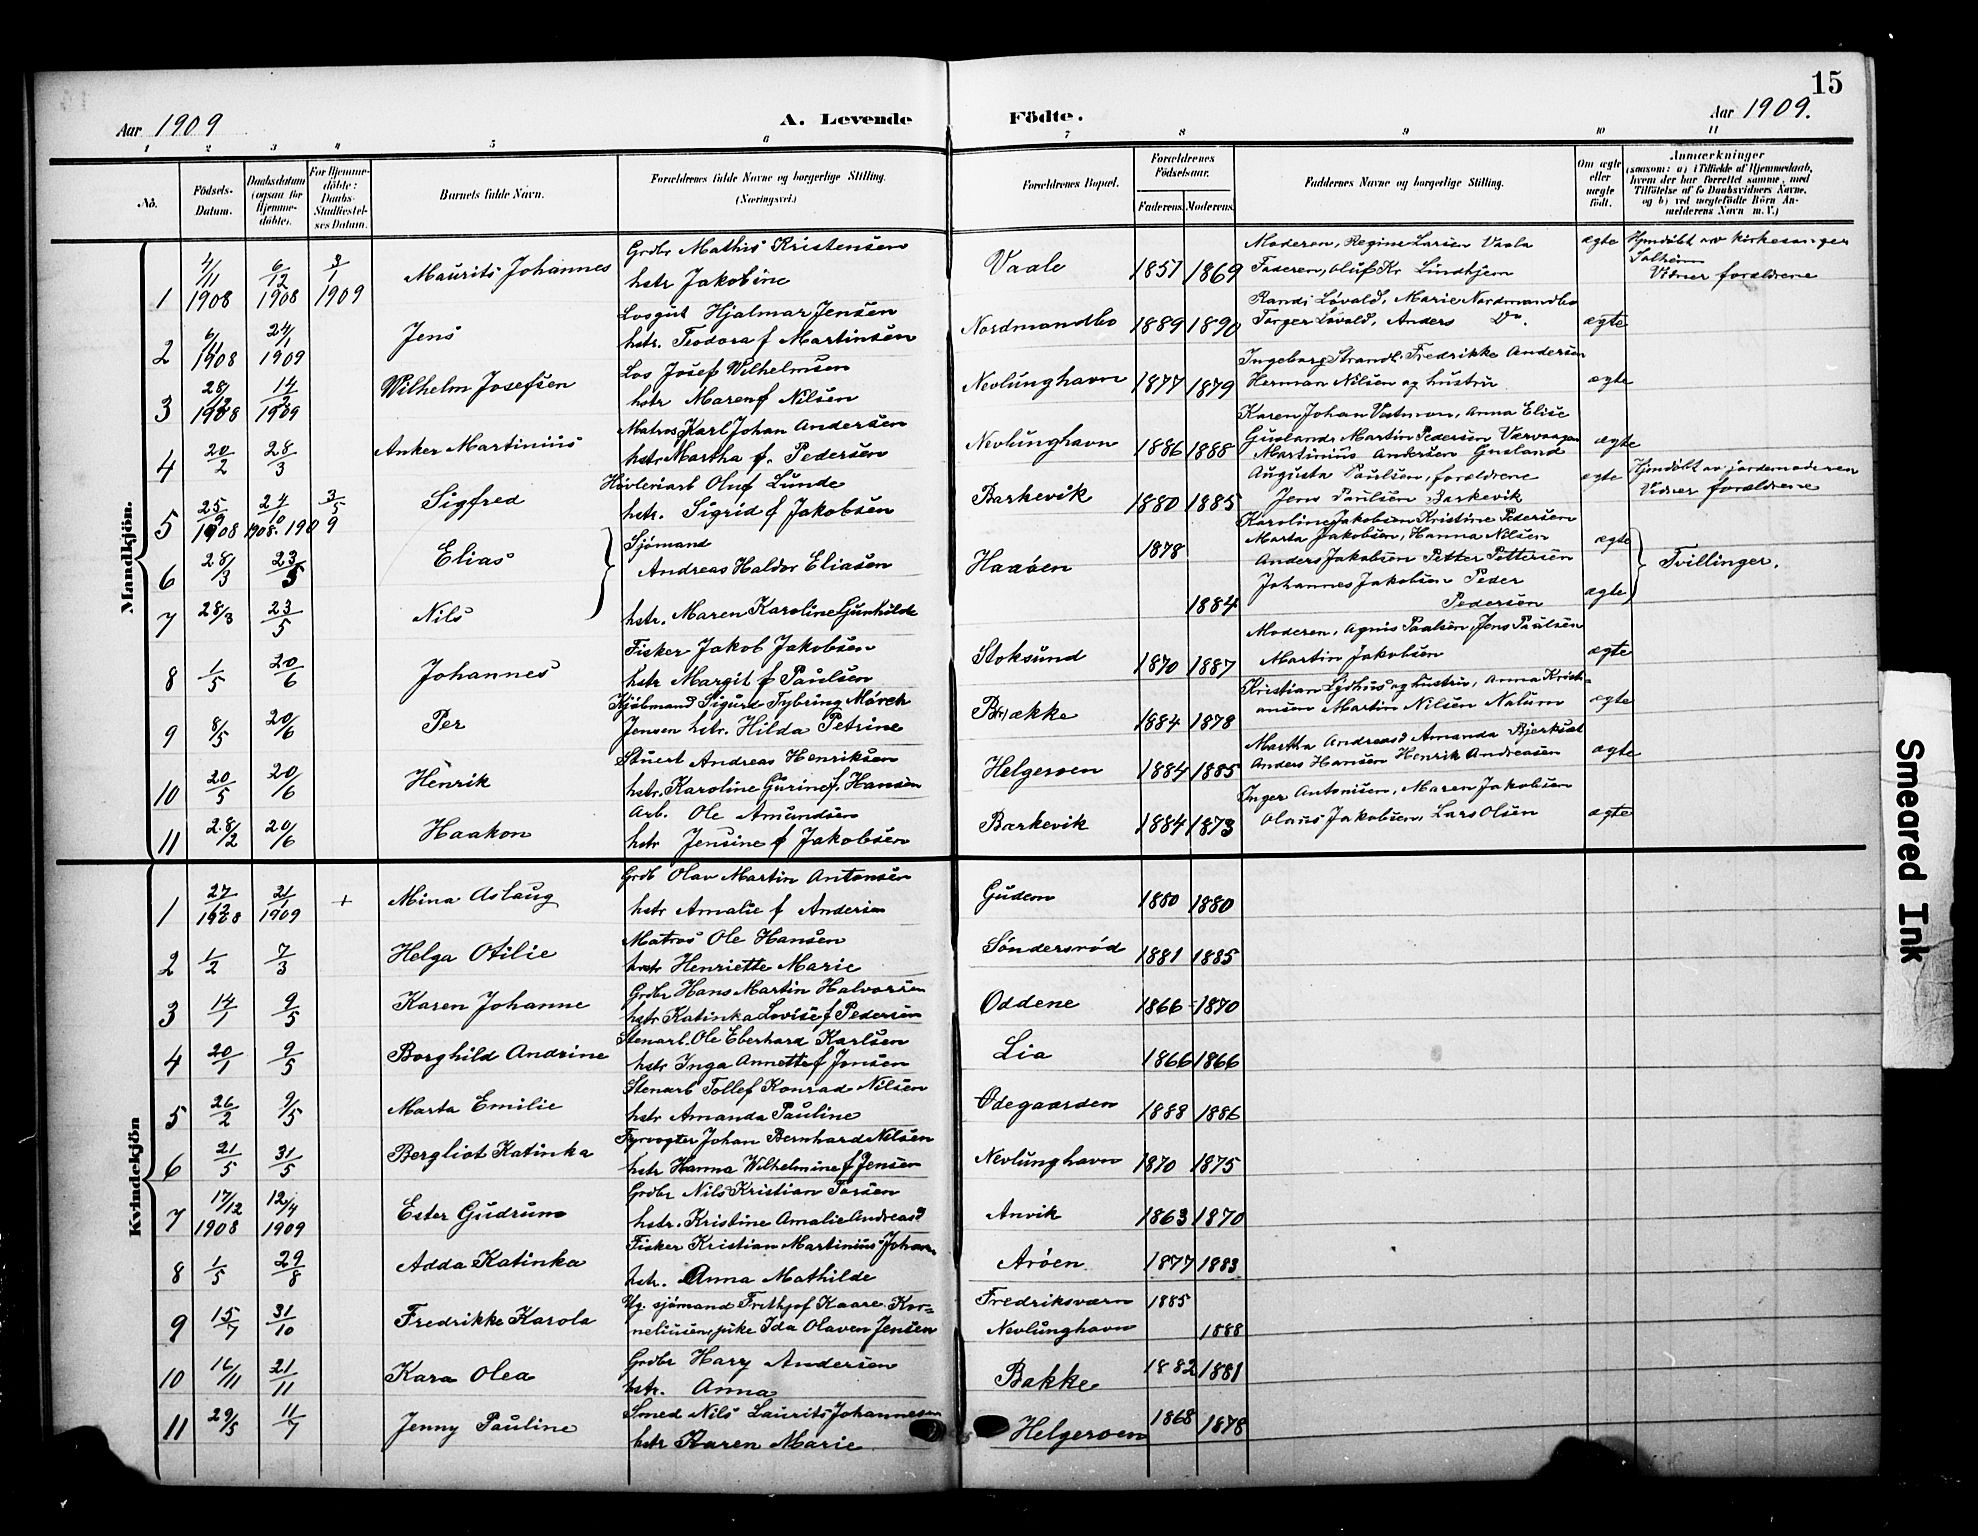 15
Aar 1909
A. Levende
Födte.
Aar 1909.
1 2 3 4 5 6 7 8 9 10 11
No.
Födsels-Datum.
Daabsdatum (ogsaa for Hjemme-döbte).
For Hjemme-döbte: Daabs-Stadfæstel-ses Datum.
Barnets fulde Navn.
Forældrenes fulde Navne og borgerlige Stilling.
(Næringsvei.)
Forældrenes Bopæl.
Forældrenes Födselsaar.
Faderens. Moderens.
Faddernes Navne og borgerlige Stilling.
Om ægte eller uægte födt.
Anmærkninger
(saasom: a) i Tilfælde af Hjemmedaab, hvem der har forrettet samme, med Tilföielse af to Daabsvidners Navne, og b) ved uægtefödte Börn An-melderens Navn m. V.)
Mandkjön.
1 4/11 1908 6/12 1908 3/1 1909 Maurits Johannes
Grdbr Mathis Kristensen
hstr Jakobine
Vaale 1851 1869
Moderen, Regine Larsen Vaala
Faderen, Oluf Kr Lindhjem
ægte
Hjemdøbt av kirkesanger
Solheim
Vidner forældrene
2 6/11 1908 24/1 1909 Jens
Losgut Hjalmar Jensen
hstr. Teodora f Martinsen
Nordmandbo 1889 1890
Randi Løvald, Marie Nordmandbo
Torger Løvald, Anders Do.
ægte
3 28/12 1908 14/2 1909 Wilhelm Josefsen
Los Josef Wilhelmsen
hstr Maren f Nilsen
Nevlunghavn 1877 1879
Ingeborg Strandl. Fredrikke Andersen
Herman Nilsen og hustru
ægte
4 20/2 28/3 Anker Martinius
Matros Karl Johan Andersen
hstr Martha f. Pedersen
Nevlunghavn 1886 1888
Karen Johan Vestmon, Anna Elise
Gusland, Martin Pedersen Værvaagen
Martinius Andersen Gusland
ægte
5 25/9 1908 24/10 1908. 3/5 1909 Sigfred
Høvleriarb Oluf Lunde
hstr. Sigrid f Jakobsen
Barkevik 1880 1885
Augusta Paulsen, forældrene
Jens Paulsen Barkevik
ægte
Hjemdøbt av jordemoderen
Vidner forældrene
6 28/3 23/5 Elias
Sjømand
Andreas Haldor Eliasen
Haaøen 1878
Karoline Jakobsen Kristine Pedersen
Marta Jakobsen, Hanna Nilsen
Anders Jakobsen Petter Pettersen
ægte
Tvillinger.
7 28/3 23/5 Nils
hstr. Maren Karoline Gunhilde
1884
Johannes Jakobsen Peder
Pedersen
ægte
8 1/5 20/6 Johannes
Fisker Jakob Jakobsen
hstr Margit f Paulsen
Stoksund 1870 1887
Moderen, Agnes Paalsen, Jens Paulsen
Martin Jakobsen
ægte
9 8/5 20/6 Per
Kjøbmand Sigurd Tybring Mørch
Jensen hstr. Hilda Petrine
Brække 1884 1878
Kristian Lydhus og hustru, Anna Kristi-
ansen Martin Nilsen Nalum
ægte
10 20/5 20/6 Henrik
Stuert Andreas Henriksen
hstr. Karoline Gurine f. Hansen
Helgeroen 1884 1885
Martha Andreasd Amanda Bjerksæt
Anders Hansen Henrik Andreasen
ægte
11 28/2 20/6 Haakon
Arb. Ole Amundsen
hstr Jensine f Jakobsen
Barkevik 1884 1873
Inger Antonisen, Maren Jakobsen
Olaus Jakobsen, Lars Olsen
ægte
Kvindekjön
1 27/12 1908 21/1 1909 + Mina Aslaug
Grdb Olav Martin Antonsen
hstr Amalie f Andersen
Gudem 1880 1880
2 1/2 7/3 Helga Otilie
Matros Ole Hansen
hstr Henriette Marie
Søndersrød 1881 1885
3 14/1 9/5 Karen Johanne
Grdbr Hans Martin Halvorsen
hstr Katinka Lovise f Pedersen
Oddene 1866 1870
4 20/1 9/5 Borghild Andrine
Stenarb. Ole Eberhard Karlsen
hstr Inga Annette f Jensen
Lia 1866 1866
5 26/2 9/5 Marta Emilie
Stenarb Tollef Konrad Nilsen
hstr Amanda Pauline
Ødegaarden 1888 1886
6 21/5 31/5 Bergliot Katinka
Fyrvogter Johan Bernhard Nilsen
hstr Hanna Wilhelmine f Jensen
Nevlunghavn 1870 1875
7 17/12 1908 12/4 1909 Ester Gudrun
Grdbr Nils Kristian Torsen
hstr. Kristine Amalie Andreasd
Anvik 1863 1870
8 1/5 29/8 Adda Katinka
Fisker Kristian Martinius Johan
hstr. Anna Mathilde
Arøen 1877 1883
9 15/7 31/10 Fredrikke Karola
Ug. sjømand Frithjof Kaare Kor-
neliusen, pike Ida Olaven Jensen
Fredriksværn 1885
Nevlunghavn 1888
10 16/11 21/11 Kara Olea
Grdbr Hary Andersen
hstr. Anna
Bakke 1882 1881
11 29/5 11/7 Jenny Pauline
Smed Nils Laurits Johannesen
hstr Karen Marie
Helgeroen 1868 1878
Smeared Ink